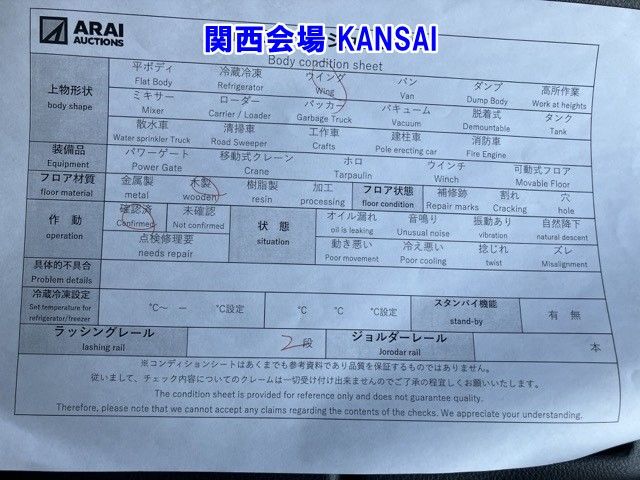 関西会場 KANSAI
ARAI
AUCTIONS
Body condition sheet
上物形状
body shape
平ボディ 冷蔵冷凍 ウイング バン ダンプ 高所作業
Flat Body Refrigerator Wing Van Dump Body Work at heights
ミキサー ローダー パッカー バキューム 脱着式 タンク
Mixer Carrier / Loader Garbage Truck Vacuum Demountable Tank
散水車 清掃車 工作車 建柱車 消防車
Water sprinkler Truck Road Sweeper Crafts Pole erecting car Fire Engine
装備品
Equipment
パワーゲート 移動式クレーン ホロ ウインチ 可動式フロア
Power Gate Crane Tarpaulin Winch Movable Floor
フロア材質
floor material
金属製 木製 樹脂製 加工
metal wooden resin processing
フロア状態
floor condition
補修跡 割れ 穴
Repair marks Cracking hole
作 動
operation
確認済 未確認
Confirmed Not confirmed
点検修理要
needs repair
状 態
situation
オイル漏れ 音鳴り 振動あり 自然降下
oil is leaking Unusual noise vibration natural descent
動き悪い 冷え悪い 捻じれ ズレ
Poor movement Poor cooling twist Misalignment
具体的不具合
Problem details
冷蔵冷凍設定
Set temperature for
refrigerator/freezer
℃～ － ℃設定 ℃ ℃ ℃設定
スタンバイ機能
stand-by
有 無
ラッシングレール
lashing rail
2段
ジョルダーレール
Jorodar rail
本
※コンディションシートはあくまでも参考資料であり品質を保証するものではありません。
従いまして、チェック内容についてのクレームは一切受け付け出来ませんのでご了承の程宜しくお願いいたします。
The condition sheet is provided for reference only and does not guarantee quality.
Therefore, please note that we cannot accept any claims regarding the contents of the checks. We appreciate your understanding.